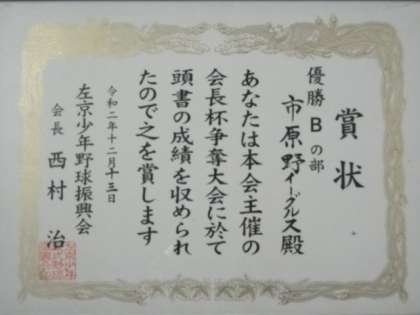 賞状
優勝 Bの部
市原野イーグルス殿
あなたは本会主催の
会長杯争奪大会に於て
頭書の成績を収められ
たので之を賞します
令和二年十二月十三日
左京少年野球振興会
会長 西村 治